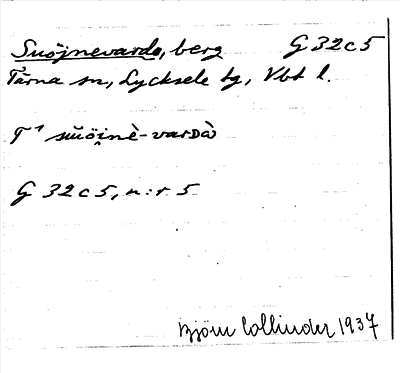 Suöjnevardo, berg G 32 c 5
Tärna sn, Lycksele tg, Vbt l.
T¹ sŭöi̯nè-vardà
G 32 c 5, n:r 5
Björn Collinder 1937